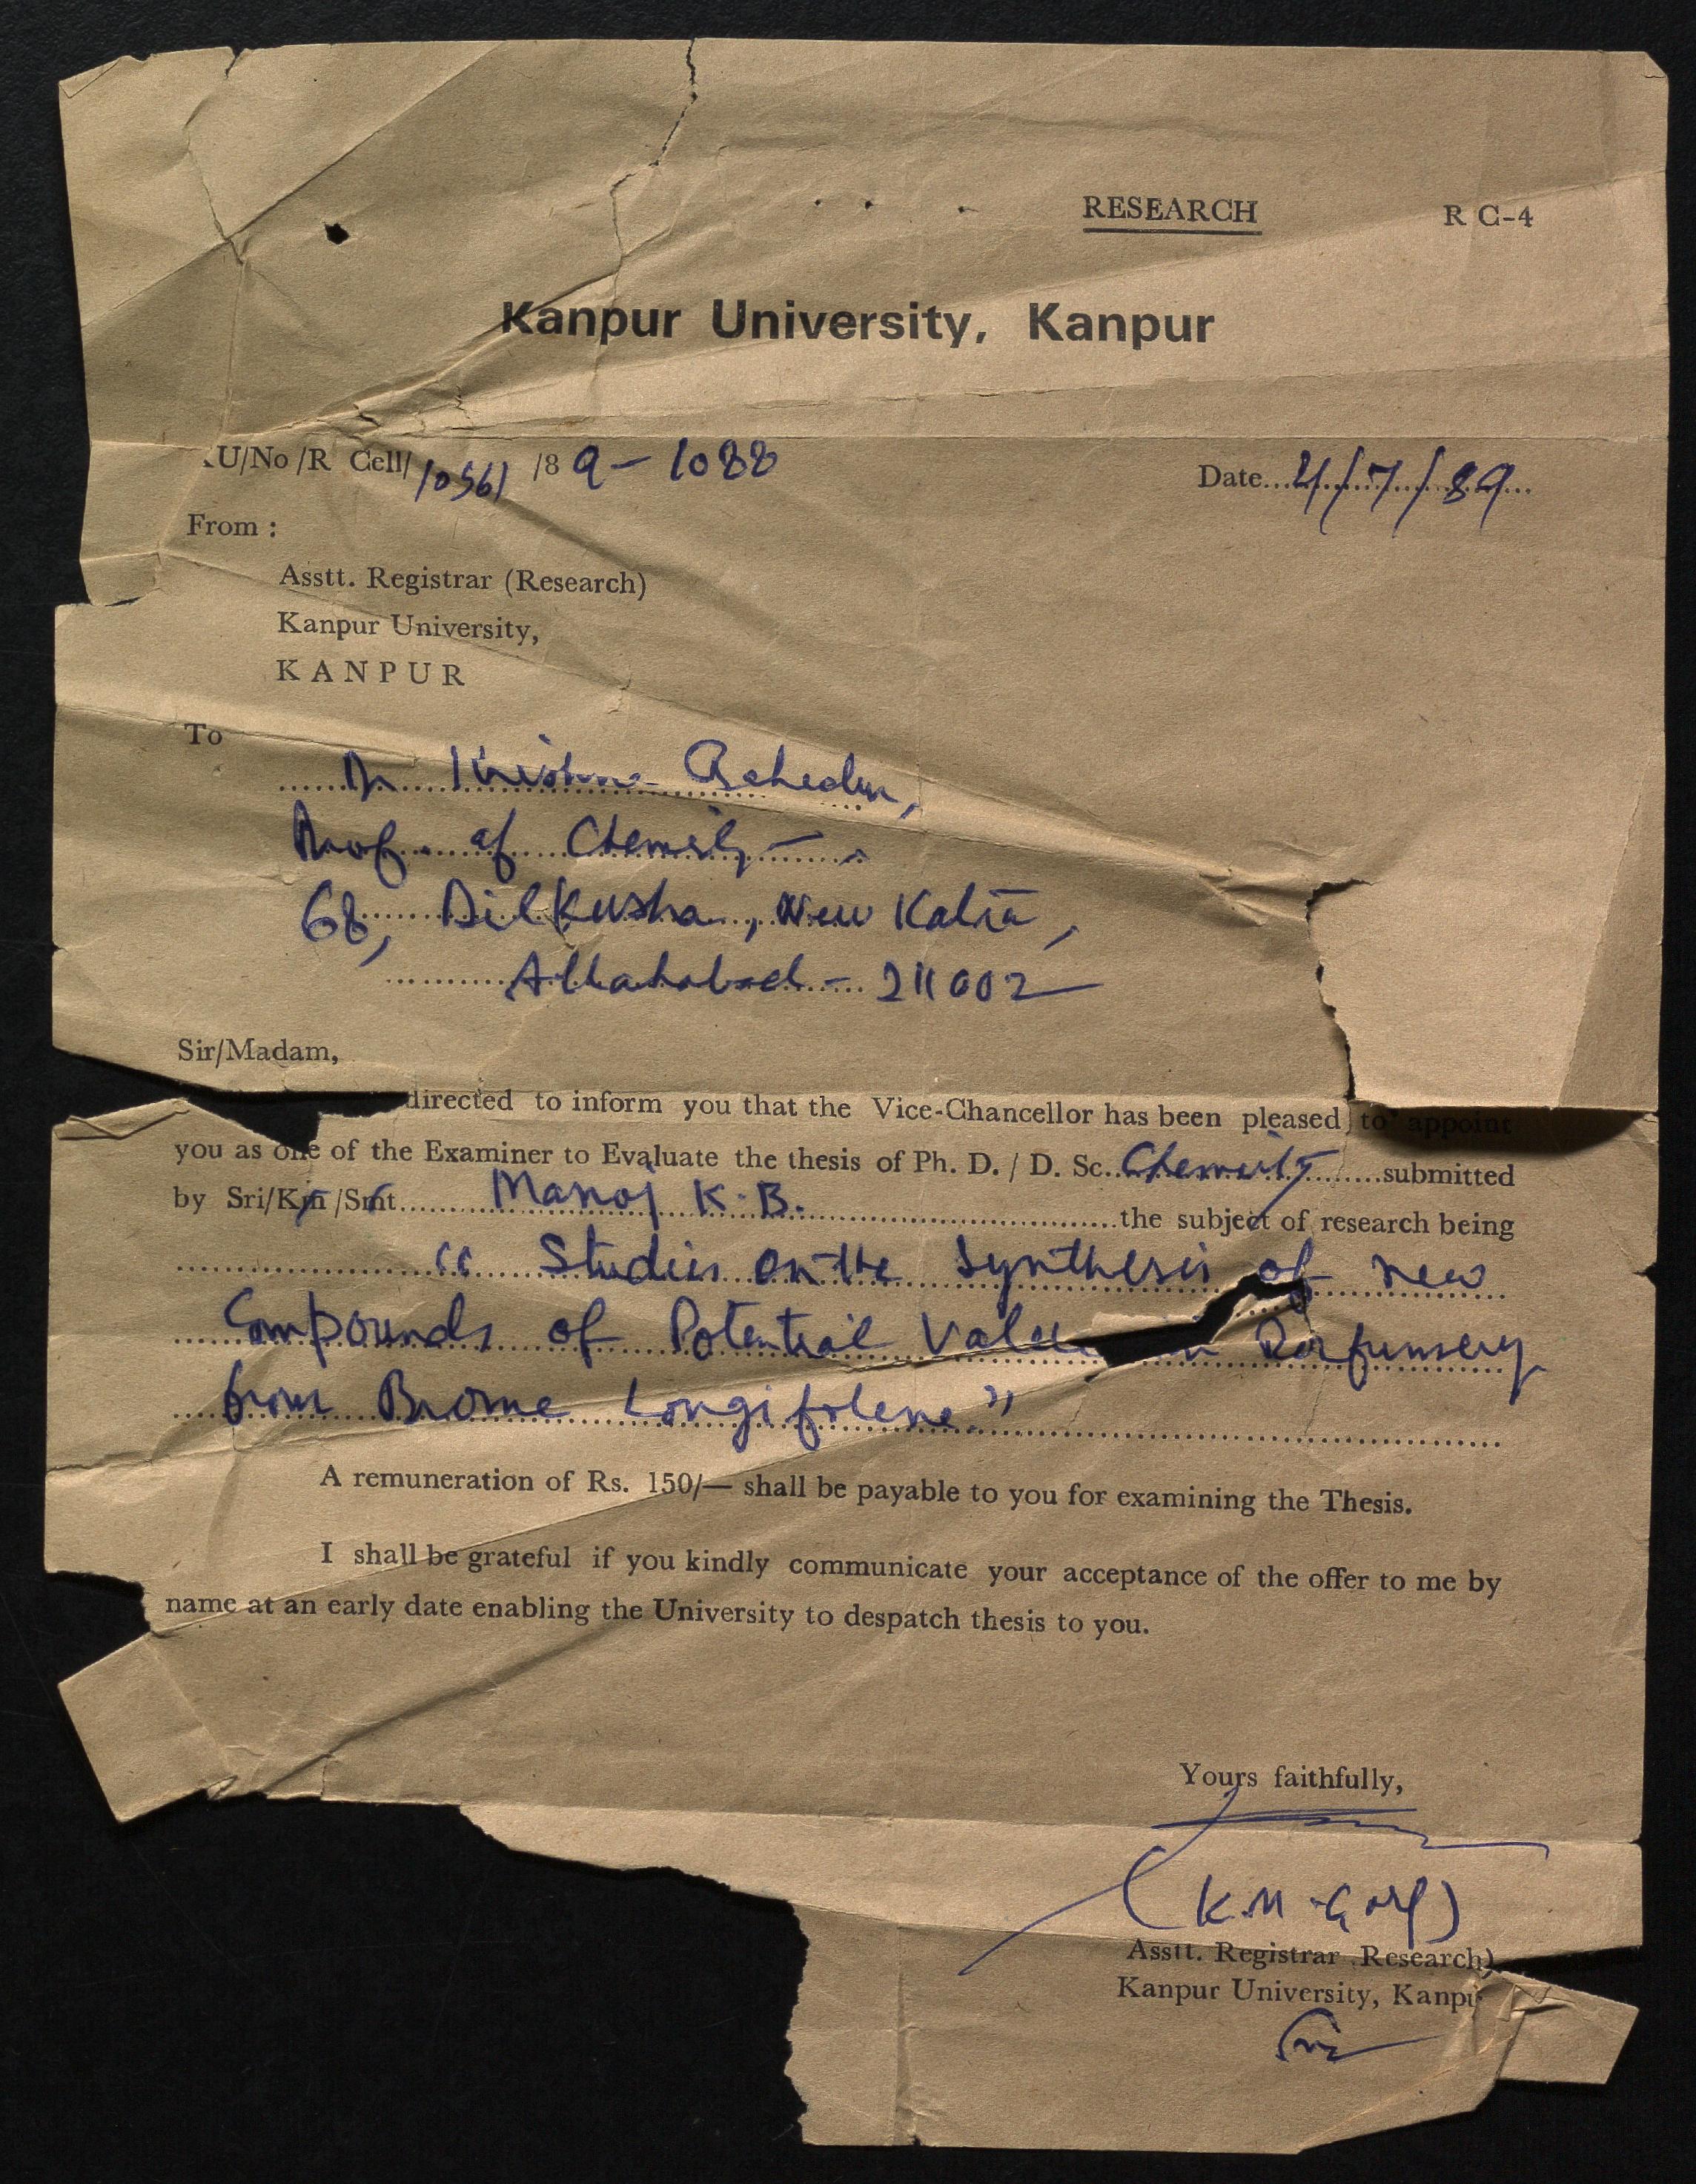 RESEARCH R C-4
Kanpur University, Kanpur
U/No /R Cell/10561 /89-1088 Date...4/7/89...
From :
Asstt. Registrar (Research)
Kanpur University,
KANPUR
To
Dr Krishna Bahadur,
Prof. of Chemistry
68, Dilkusha, New Katra,
Allahabad - 211002
Sir/Madam,
directed to inform you that the Vice-Chancellor has been pleased to appoint
you as one of the Examiner to Evaluate the thesis of Ph. D. / D. Sc. Chemistry submitted
by Sri/Km /Smt. Manoj K. B. the subject of research being
"Studies on the Synthesis of new
Compounds of Potential Value in Perfumery
from Bromo Longifolene."
A remuneration of Rs. 150/— shall be payable to you for examining the Thesis.
I shall be grateful if you kindly communicate your acceptance of the offer to me by
name at an early date enabling the University to despatch thesis to you.
Yours faithfully,
(K.M. Garg)
Asstt. Registrar Research)
Kanpur University, Kanpu